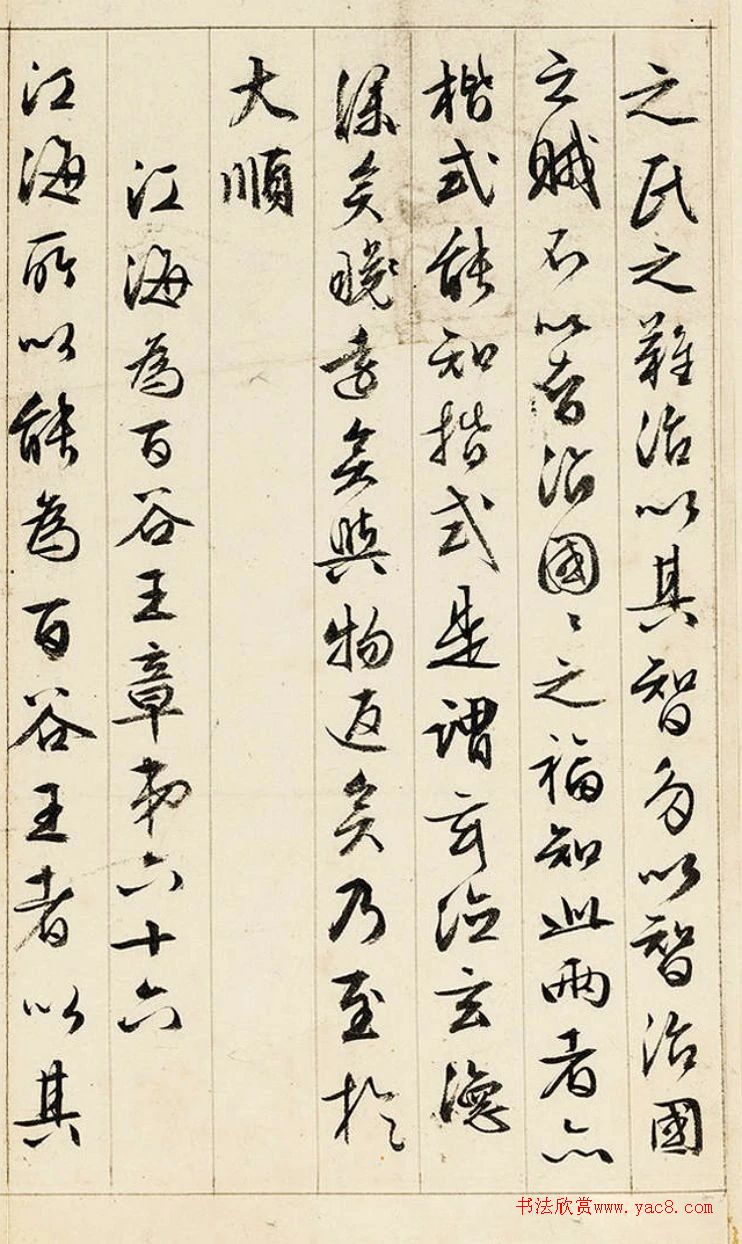 之民之難治以其智多以智治國
之賊不以智治國〻之福知此兩者亦
楷式能知楷式是謂玄德玄德
深矣遠矣與物返矣乃至於
大順
江海為百谷王章第六十六
江海所以能為百谷王者以其
书法欣赏www.yac8.com